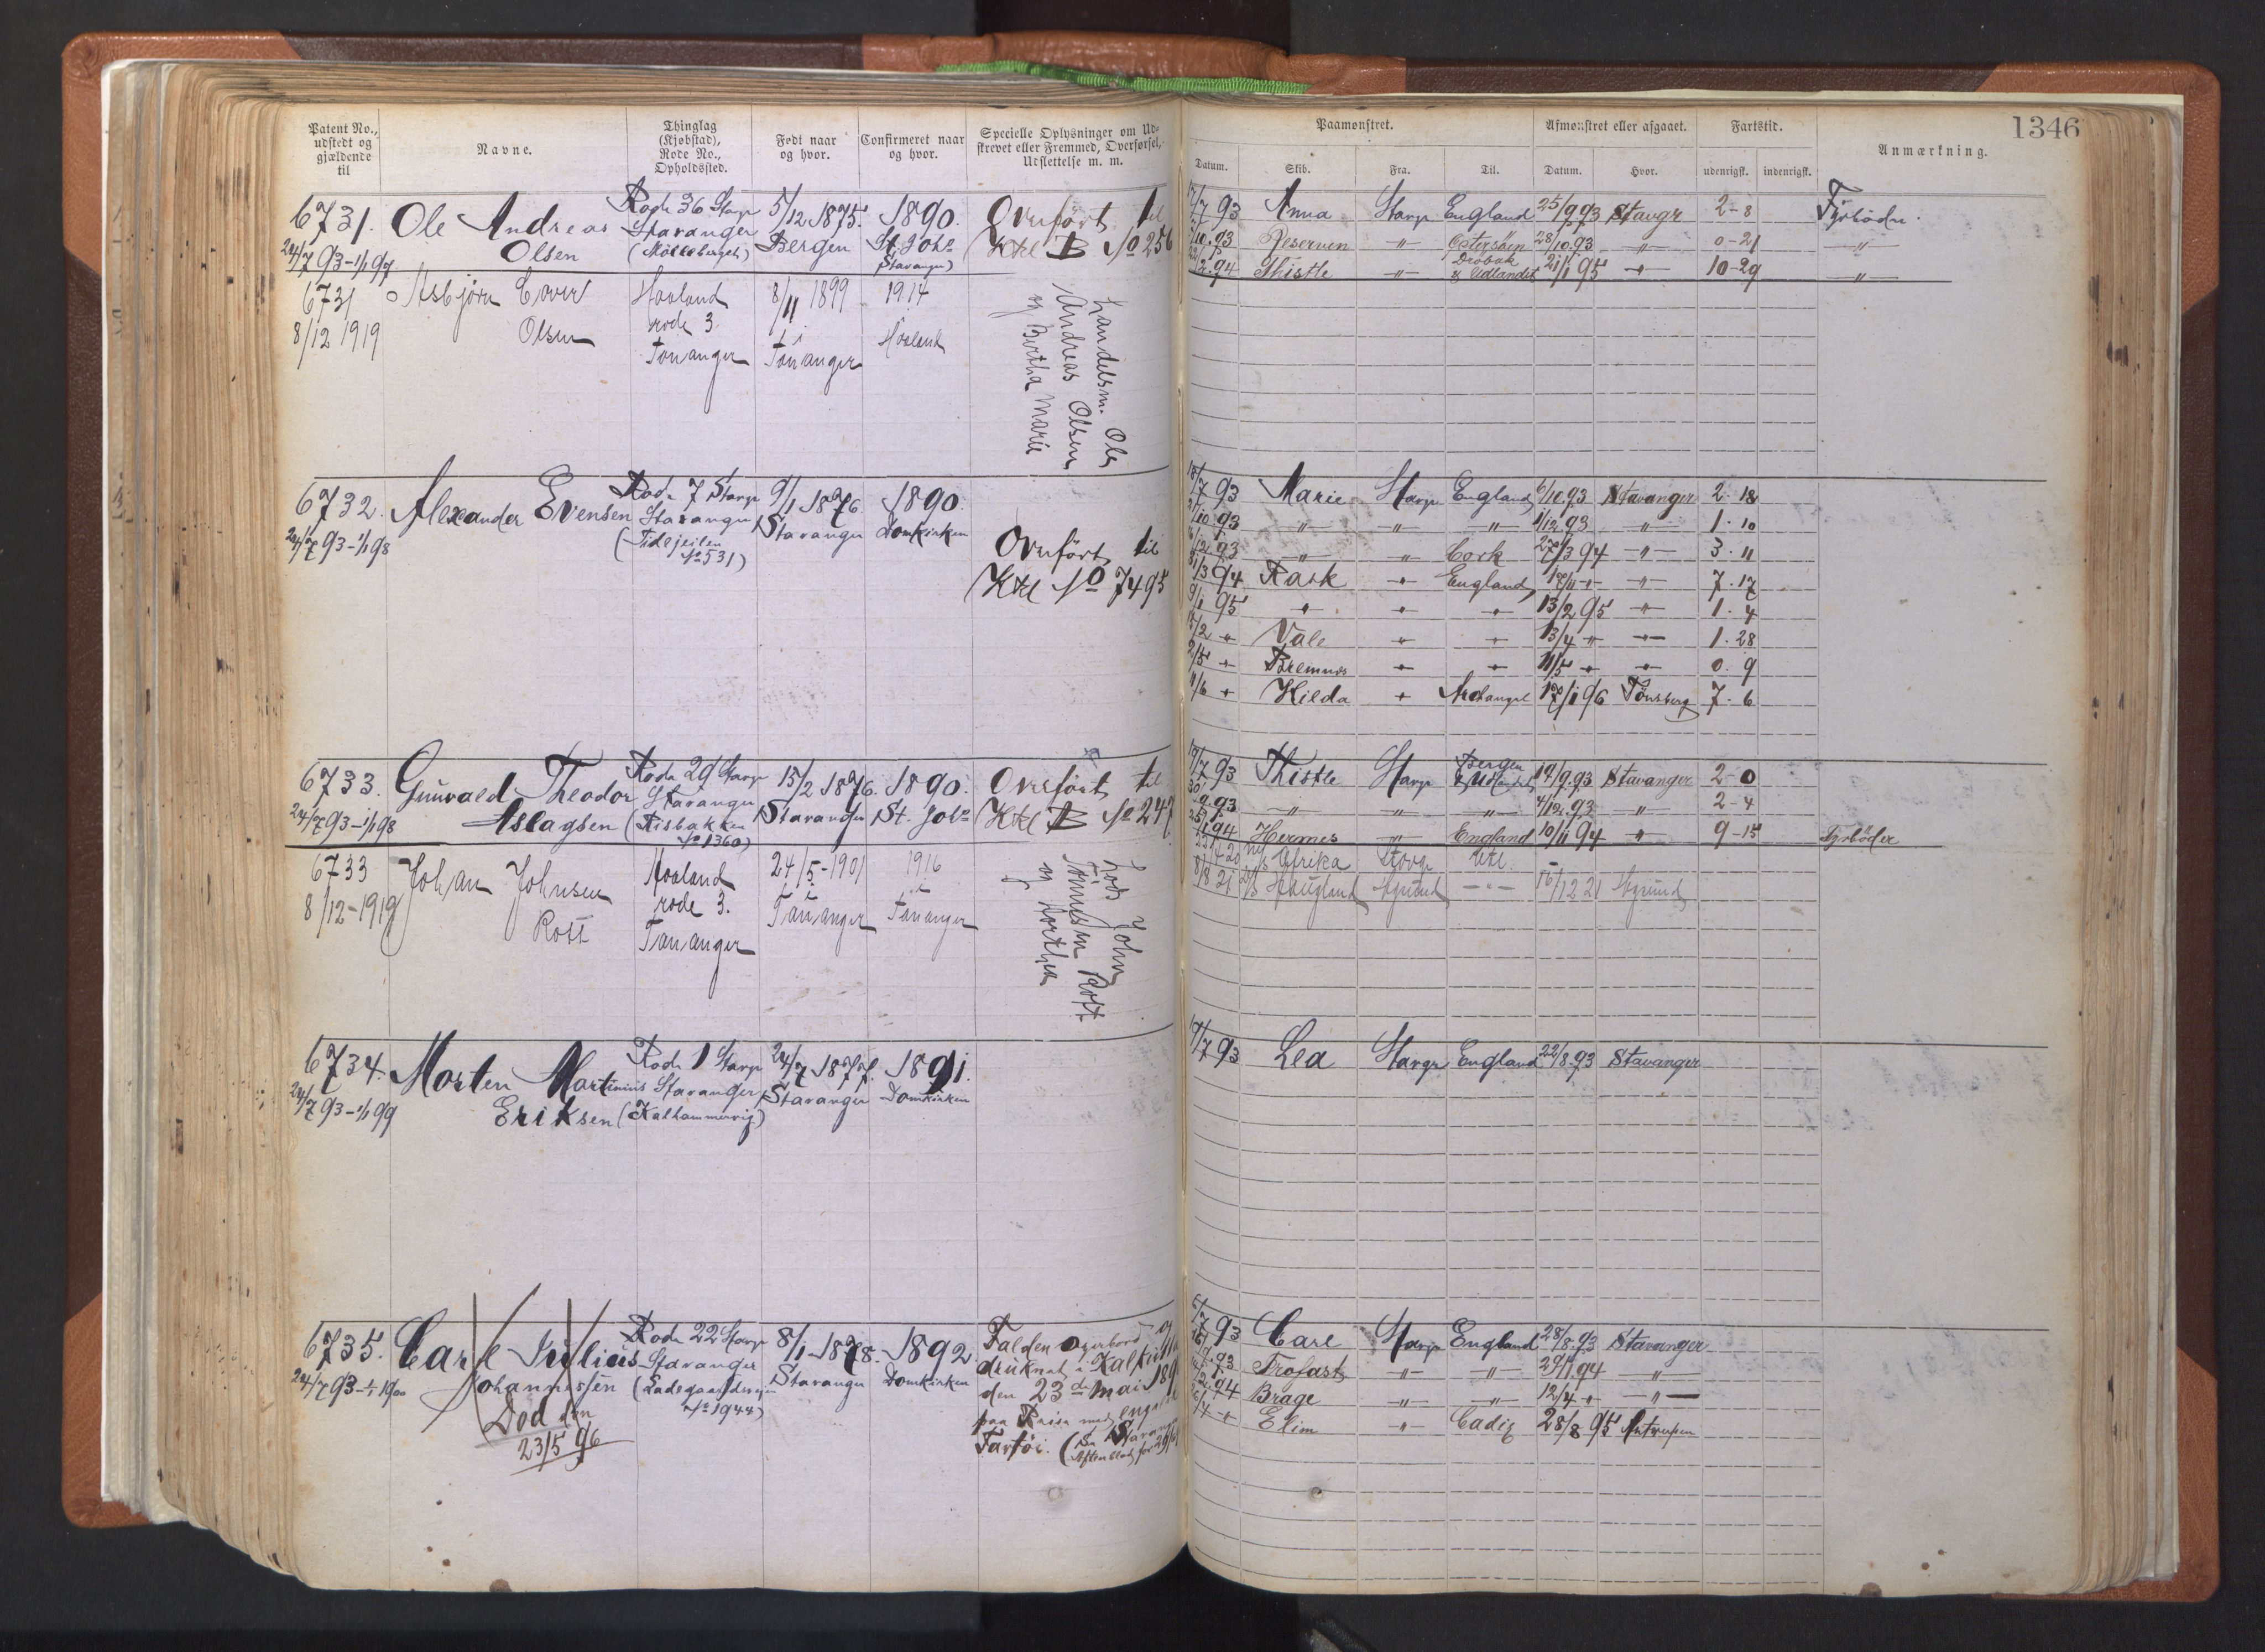 1346
Patent No., udstedt og gjældende til
Navne.
Thinglag (Kjøbstad), Rode No., Opholdssted.
Født naar og hvor.
Confirmeret naar og hvor.
Specielle Oplysninger om Udskrevet eller Fremmed, Overførsel, Udslettelse m. m.
Paamønstret.
Afmønstret eller afgaaet.
Fartstid.
Anmærkning.
Datum. Skib. Fra. Til. Datum. Hvor. udenrigsk. indenrigsk.
6731. Ole Andreas Rode 36 Stavgr 5/12 1875. 1890. Overført til
Olsen Stavanger Bergen St. Joh. Ktl B No 256
24/7 93-1/1 97 (Möllebergeh) Stavanger)
17/7 93 Anna Stavgr England 25/9 93 Stavgr 2-8 Fyrböder.
Reserven " Östersöen 28/10.93 " 0-21 "
Thistle " Dröbak & Udlandet 21/1 95 " 10-29 "
6731 Asbjörn Enver Haaland 8/11 1899 1914
8/12 1919 Olsen rode 3 i Haaland
Tananger Tananger
Handelsm. Ole
Andreas Olsen
og Bertha Marie
6732. Alexander Evensen Rode 7 Stavgr 9/1 1876. 1890.
24/7 93-1/1 98 Stavanger Stavanger Domkirken
(Tidejeilen No 531)
Overført til
Ktl No 7495
18/7 93 Marie Stavgr England 6/10.93 Stavanger 2-18
21/10 93 " " " 1/12 93 " 1.10
6/12 93 " " Cork 27/3 94 " 3.11
31/3 94 Rask " England 17/11 " " 7.17
9/1 95 " " " 13/2 95 " 1.4
15/2 " Vale " " 13/4 " " 1.28
2/5 " Bremnes " " 11/5 " " 0.9
11/6 " Hilda " Archangel 17/1 96 Tönsberg 7.6
6733. Gunvald Theodor Rode 29 Stavgr 15/2 1876. 1890. Overført til
24/7 93-1/1 98 Aslagsen Stavanger Stavanger St. Joh. Ktl B No 247
(Risbakken No 1360)
19/7 93 Thistle Stavgr Bergen & Udlandet 14/9.93 Stavanger 2-0
9.93 " " " 4/12.93 " 2-4
94 Hermes " England 10/11 94 " 9-15 Fyrböder
6733 Johan Johnsen Haaland 24/5-1901 1916
8/12-1919 Rott rode 3. i i
Tananger Tananger Tananger
Lods John
Tönnesen Rott
og Dorthea
Afrika Stavgr Utl.
8/8 21 D/S Haugland Hgsund " 16/12 21 Hgsund
6734. Morten Martinius Rode 1 Stavgr 24/7 1877. 1891.
24/7 93-1/1 99 Eriksen Stavanger Stavanger Domkirken
(Kalhammervig)
19/7 93 Lea Stavgr England 22/8.93 Stavanger
6735. Carl Julius Rode 22 Stavgr 8/1 1878. 1892.
24/7 93-1/1 1900 Johannessen Stavanger Stavanger Domkirken
(Ladegaardsveien No 1944)
Død den
23/5 96
Falden overbord og
druknet i
den 23de Mai 189
paa Reise med
Fartøi. (
5/7 93 Carl Stavgr England 28/8.93 Stavanger
93 Profast " " 29/1.94 "
94 Brage " " 12/4 " "
Elim " Cadiz 28/8 95 Antwerpen